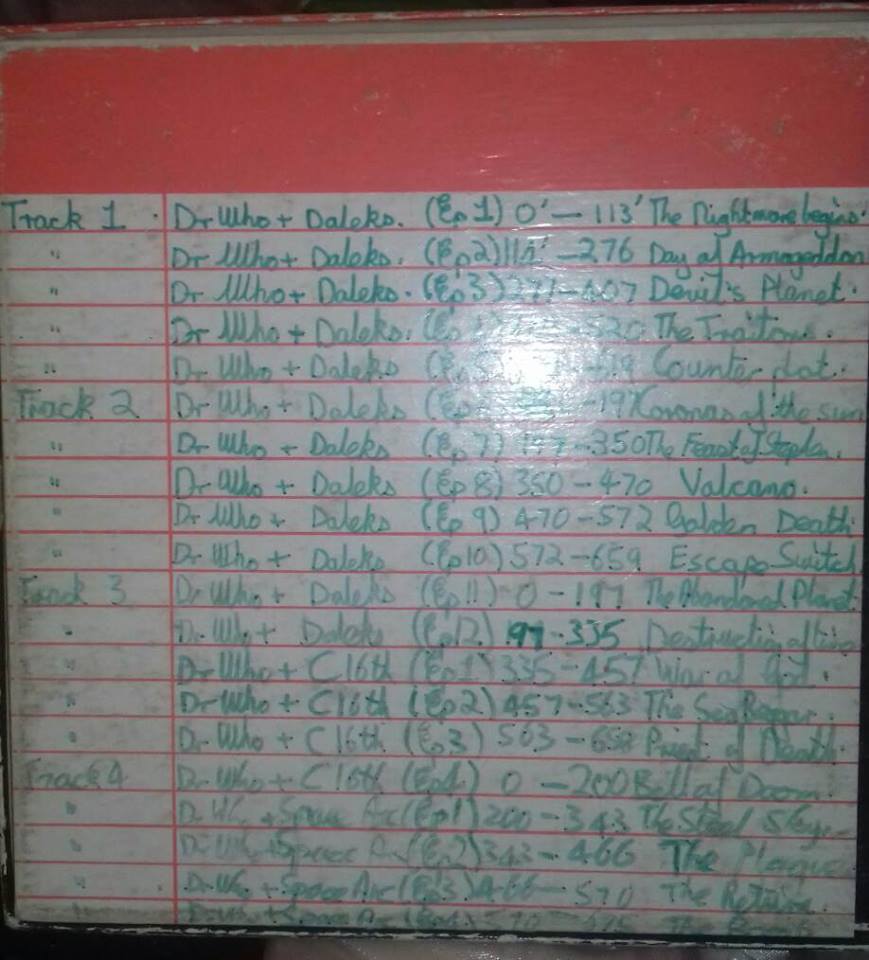 Track 1 . Dr Who + Daleks. (Ep 1) 0' — 113' The Nightmare begins.
" Dr Who + Daleks. (Ep 2) -276 Day of Armageddon
" Dr Who + Daleks. (Ep 3) -407 Devil's Planet.
" Dr Who + Daleks. The Traitors.
" Dr Who + Daleks Counter plot.
Track 2 Dr Who + Daleks Coronas of the sun
" Dr Who + Daleks (Ep 7) 197-350 The Feast of Stephen.
" Dr Who + Daleks (Ep 8) 350-470 Valcano.
" Dr Who + Daleks (Ep 9) 470-572 Golden Death.
" Dr Who + Daleks (Ep 10) 572-659 Escape Switch
Track 3 Dr Who + Daleks (Ep 11) 0 - 197 The Abandoned Planet.
" Dr Who + Daleks (Ep 12) 97-335 Destruction of time
" Dr Who + C 16th (Ep 1) 335-457 War of God.
" Dr Who + C 16th (Ep 2) 457-563 The Sea Beggar.
" Dr Who + C 16th (Ep 3) 563-658 Priest of Death.
Track 4 Dr Who + C 16th (Ep 4) 0 -200 Bell of Doom.
" Dr Who + Space Arc (Ep 1) 200 - 343 The Steel Sky.
" Dr Who + Space Arc (Ep 2) 343 - 466 The Plague
" Dr Who + Space Arc (Ep 3) 466- 570 The Return.
" Dr Who + Space Arc (Ep 4) 570 The